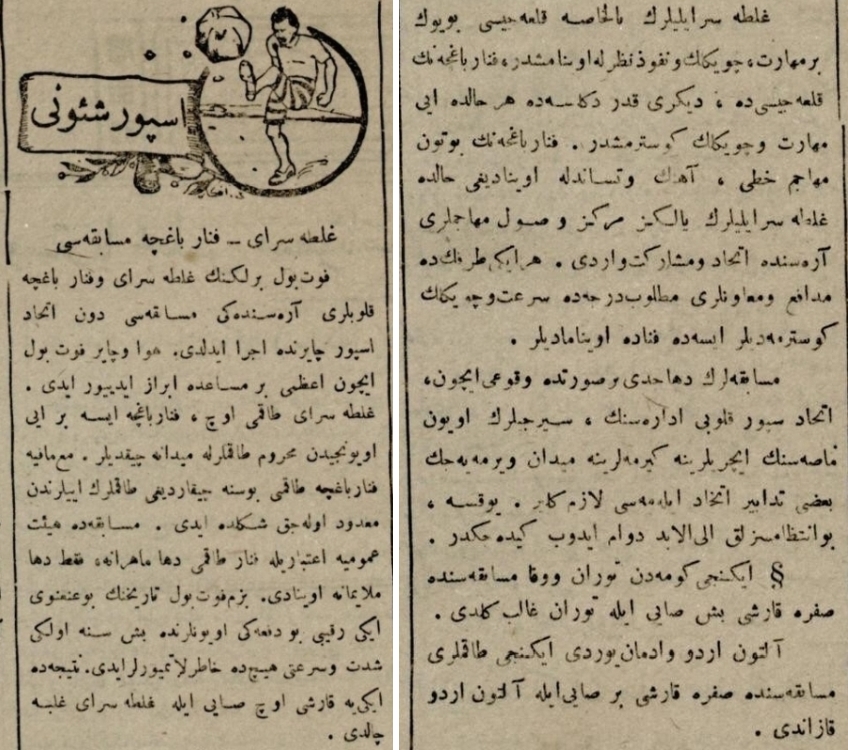 اسپور شئونی
غلطه سرای ــ فنار باغچه مسابقه‌سی
فوت‌بول برلکنك غلطه سرای وفنار باغچه
قلوبلری آره‌سنده‌کی مسابقه‌سی دون اتحاد
اسپور چایرنده اجرا ایدلدی. هوا وچایر فوت بول
ایچون اعظمی بر مساعده ابراز ایدییور ایدی .
غلطه سرای طاقمی اوچ ، فنارباغچه ایسه بر ایی
اویونجیدن محروم طاقملرله میدانه چیقدیلر . مع‌مافیه
فنارباغچه طاقمی بوسنه چیقاردیغی طاقملرك اییلرندن
معدود اوله‌جق شکلده ایدی . مسابقه‌ده هیئت
عمومیه اعتباریله فنار طاقمی دها ماهرانه، فقط دها
ملایمانه اوینادی. بزم‌فوت‌بول تاریخنك بوعنعنوی
ایکی رقیبی بو دفعه‌کی اویونلرنده بش سنه اولکی
شدت وسرعتی هیچده خاطرلاتمیورلرایدی. نتیجه‌ده
ایکی‌یه قارشی اوچ صایی ایله غلطه سرای غلبه
چالدی .
غلطه سرایلیلرك بالخاصه قلعه‌جیسی بویوك
برمهارت، چویکلك ونفوذ نظرله‌اوینامشدر، فنارباغچه‌نك
قلعه‌جیسی‌ده ، دیکری قدر دکلسه‌ده هر حالده ایی
مهارت وچویکلك کوسترمشدر . فنارباغچه‌نك بوتون
مهاجم خطی ، آهنك وتساندله اوینادیغی حالده
غلطه سرایلیلرك یالکز مرکز و صول مهاجملری
آره‌سنده اتحاد ومشارکت‌واردی . هرایکی‌طرفك‌ده
مدافع ومعاونلری مطلوب‌درجه‌ده سرعت‌وچویکلك
کوسترمه‌دیلر ایسه‌ده فناده اوینامادیلر .
مسابقه‌لرك دهاجدی برصورتده وقوعی‌ایچون،
اتحاد سپور قلوبی اداره‌سنك ، سیرجیلرك اویون
ماصه‌سنك ایچریلرینه کیرمه‌لرینه میدان ویرمه‌یه‌جك
بعضی تدابیر اتخاد ایله‌مه‌سی لازم‌کلیر . یوقسه ،
بوانتظامسزلق الی‌الابد دوام ایدوب کیده‌جکدر .
§ ایکنجی‌کومه‌دن توران ووفا مسابقه‌سنده
صفره قارشی بش صایی ایله توران غالب‌کلدی .
آلتون اردو وادمان‌یوردی ایکنجی طاقملری
مسابقه‌سنده صفره قارشی بر صایی‌ایله آلتون اردو
قازاندی .